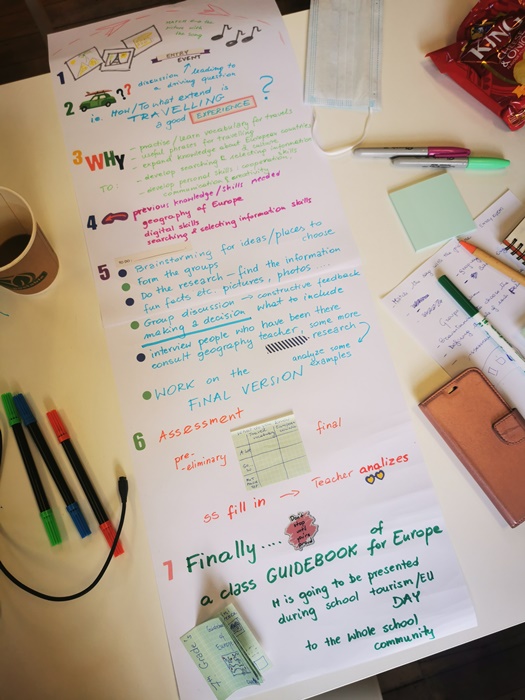 1
ENTRY
EVENT
2 ??
discussion leading to
a driving question
i.e. How/To what extend is
TRAVELLING
a good EXPERIENCE ?
3 WHY
TO:
- practise/learn vocabulary for travels
- useful phrases for travelling
- expand knowledge about European countries
& culture
- develop searching & selecting information
skills
- develop personal skills - cooperation,
communication & creativity
4
previous knowledge/skills needed
geography of Europe
digital skills
searching & selecting information skills
5
Brainstorming for ideas/places to
choose
Form the groups
Do the research - find the information
fun facts etc. pictures, photos...
Group discussion → constructive feedback
making a decision what to include
interview people who have been there
consult geography teacher, some more
research
analyze some
examples
WORK on the
FINAL VERSION
6
Assessment
pre-
-eliminary
final
ss fill in → Teacher analizes
7 Finally....
Don't
stop
until
you're
proud
a class GUIDEBOOK of for Europe
It is going to be presented
during school tourism/EU
DAY
to the whole school
community
7th Grade
KING